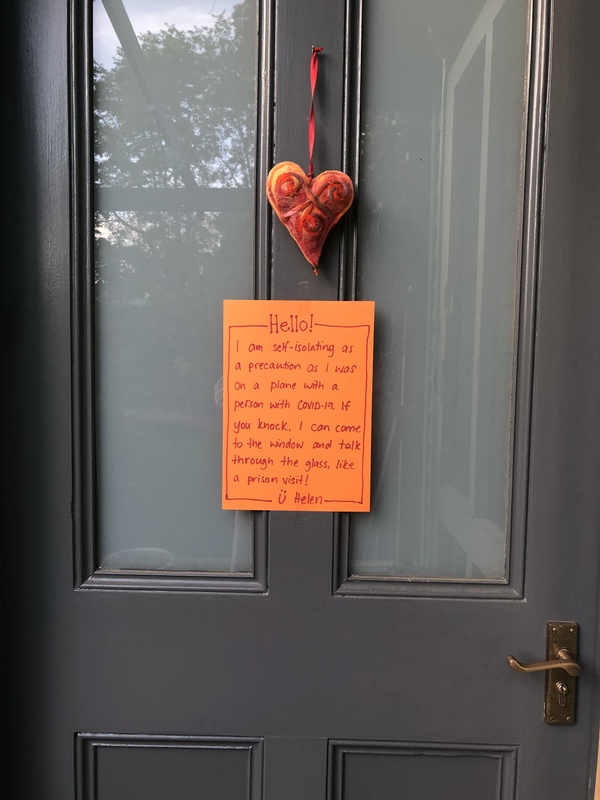 Hello!
I am self-isolating as
a precaution as I was
on a plane with a
person with COVID-19. If
you knock, I can come
to the window and talk
through the glass, like
a prison visit!
Ü Helen